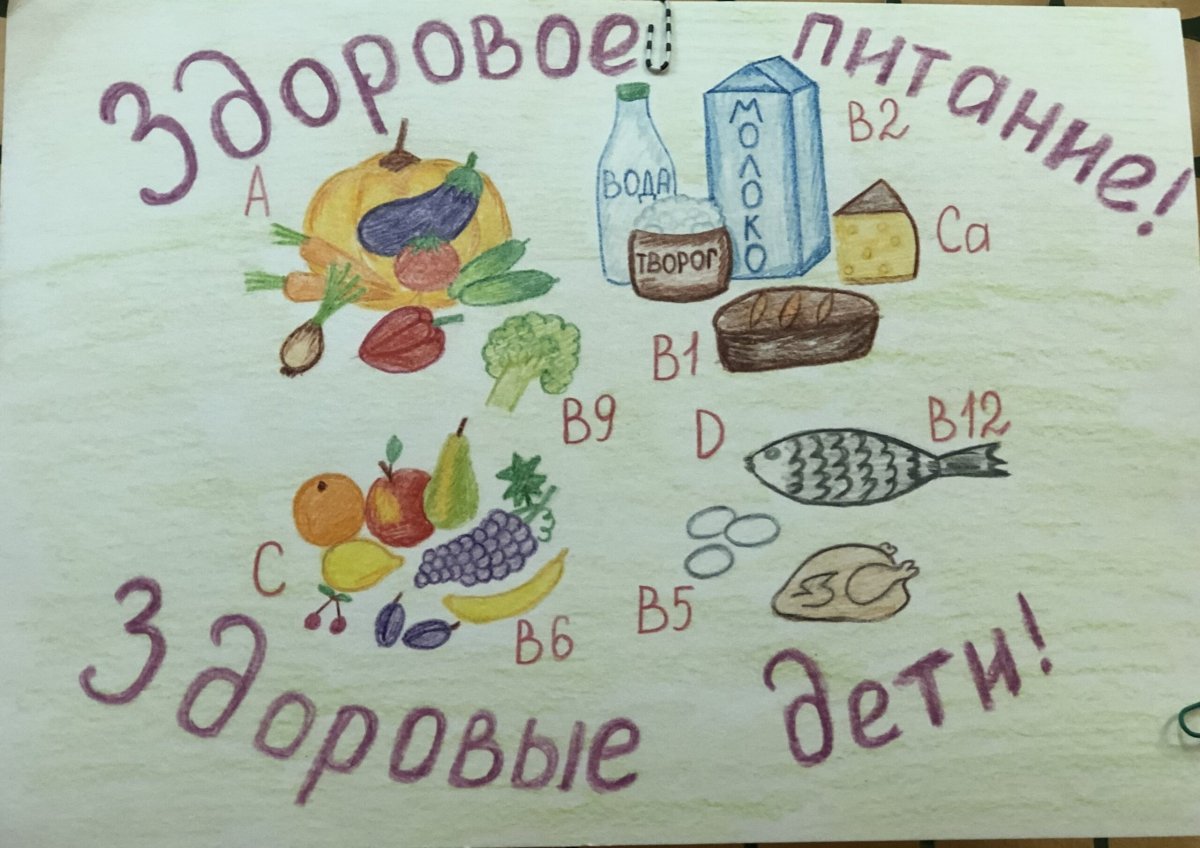 Здоровое питание!
A
ВОДА
МОЛОКО
B2
ТВОРОГ
Ca
B1
B9
D
B12
C
B6
B5
Здоровые дети!